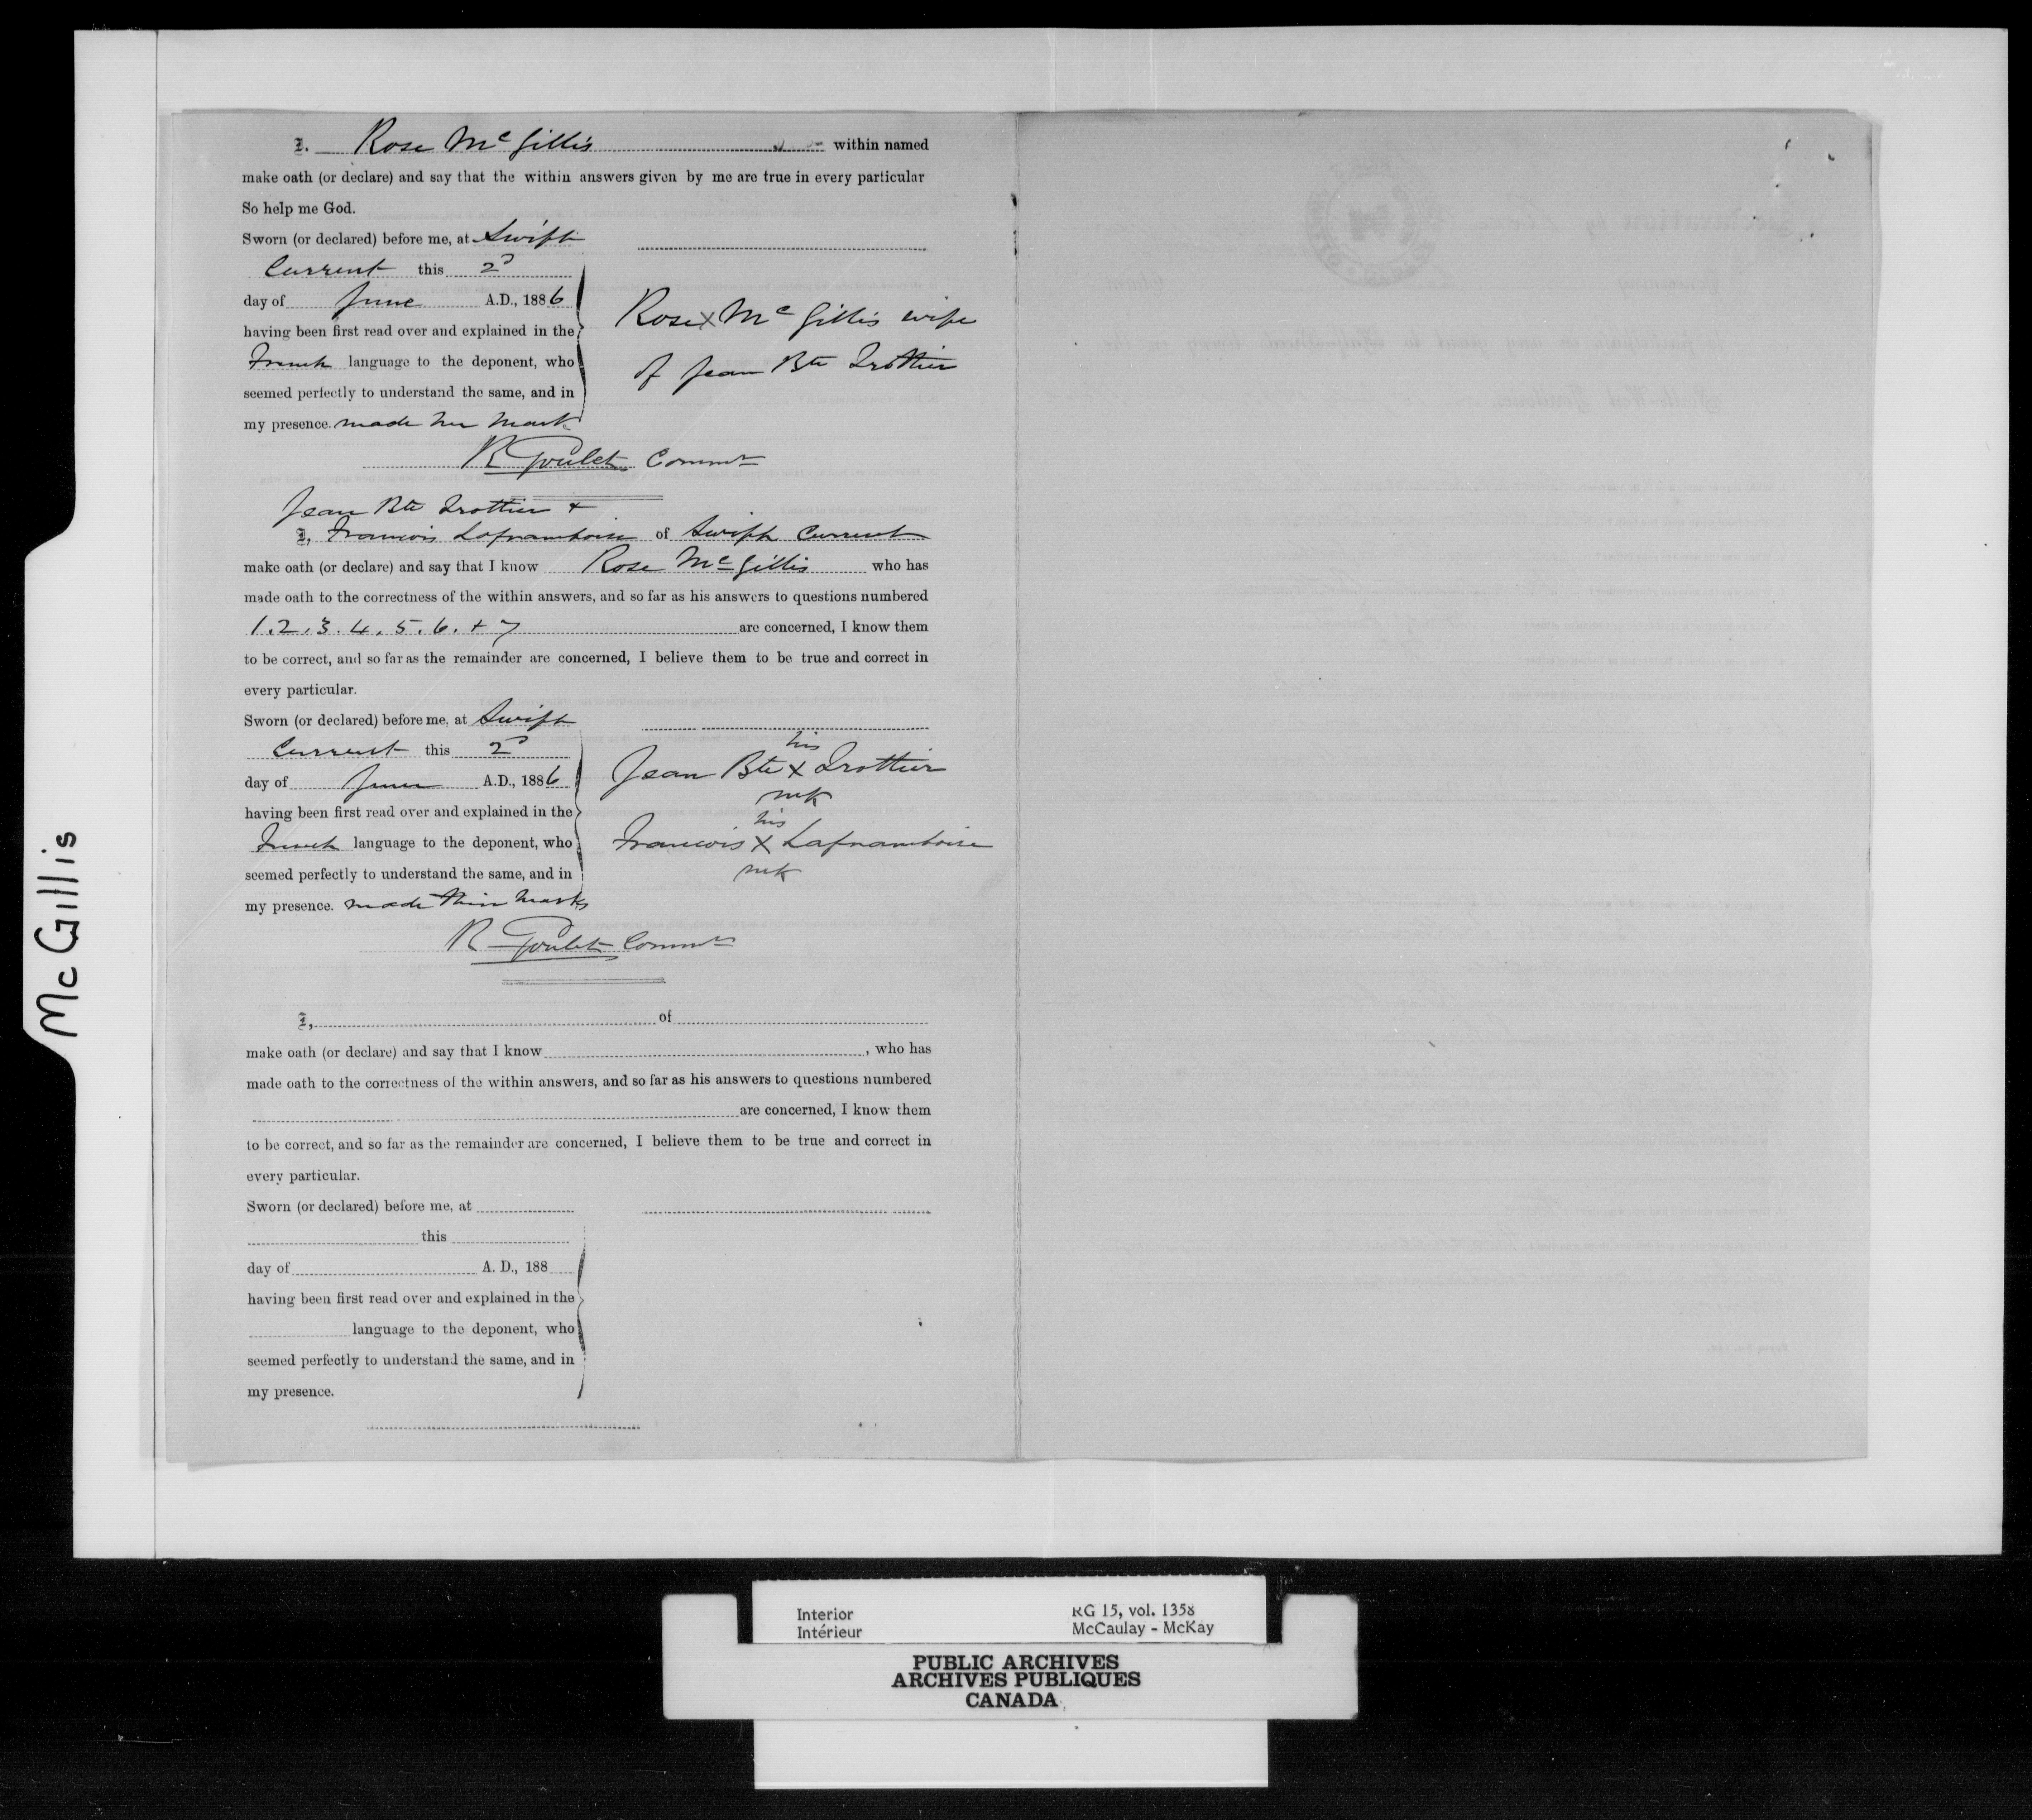 I. Rose McGillis within named
make oath (or declare) and say that the within answers given by me are true in every particular
So help me God.
Sworn (or declared) before me, at Swift
Current this 2d
day of June A.D., 1886
having been first read over and explained in the
French language to the deponent, who
seemed perfectly to understand the same, and in
my presence. made her mark
Rose X McGillis wife
of Jean Bte Trottier
R Goulet Commr
Jean Bte Trottier +
I, Francois Laframboise of Swift Current
make oath (or declare) and say that I know Rose McGillis who has
made oath to the correctness of the within answers, and so far as his answers to questions numbered
1. 2. 3. 4. 5. 6. + 7 are concerned, I know them
to be correct, and so far as the remainder are concerned, I believe them to be true and correct in
every particular.
Sworn (or declared) before me, at Swift
Current this 2d
day of June A.D., 1886
having been first read over and explained in the
French language to the deponent, who
seemed perfectly to understand the same, and in
my presence. made their marks
his
Jean Bte X Trottier
mk
his
Francois X Laframboise
mk
R Goulet Commr
I, of
make oath (or declare) and say that I know , who has
made oath to the correctness of the within answers, and so far as his answers to questions numbered
are concerned, I know them
to be correct, and so far as the remainder are concerned, I believe them to be true and correct in
every particular.
Sworn (or declared) before me, at
this
day of A. D., 188
having been first read over and explained in the
language to the deponent, who
seemed perfectly to understand the same, and in
my presence.
McGillis
Interior
Intérieur
RG 15, vol. 1358
McCaulay - McKay
PUBLIC ARCHIVES
ARCHIVES PUBLIQUES
CANADA